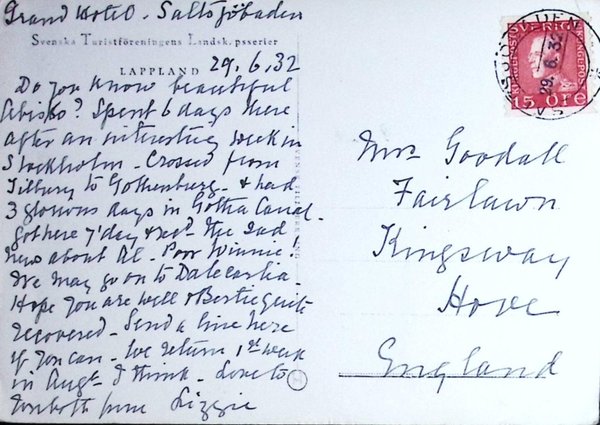 Grand Hotel - Saltsjöbaden
Svenska Turistföreningens Landskapsserier
LAPPLAND
29.6.32
Do you know beautiful
Abisko? Spent 6 days there
after an interesting week in
Stockholm - Crossed from
Tilbury to Gothenburg - & had
3 glorious days in Götha Canal.
Got here y'day & recd the sad
news about Al. Poor Winnie!
We may go on to Dalecarlia -
Hope you are well & Bertie quite
recovered - Send a line here
if you can - We return 1st week
in Augt I think - Love to
you both from Lizzie
SVERIGE
15 ÖRE
29.6.32
Mrs Goodall
Fairlawn
Kingsway
Hove
England